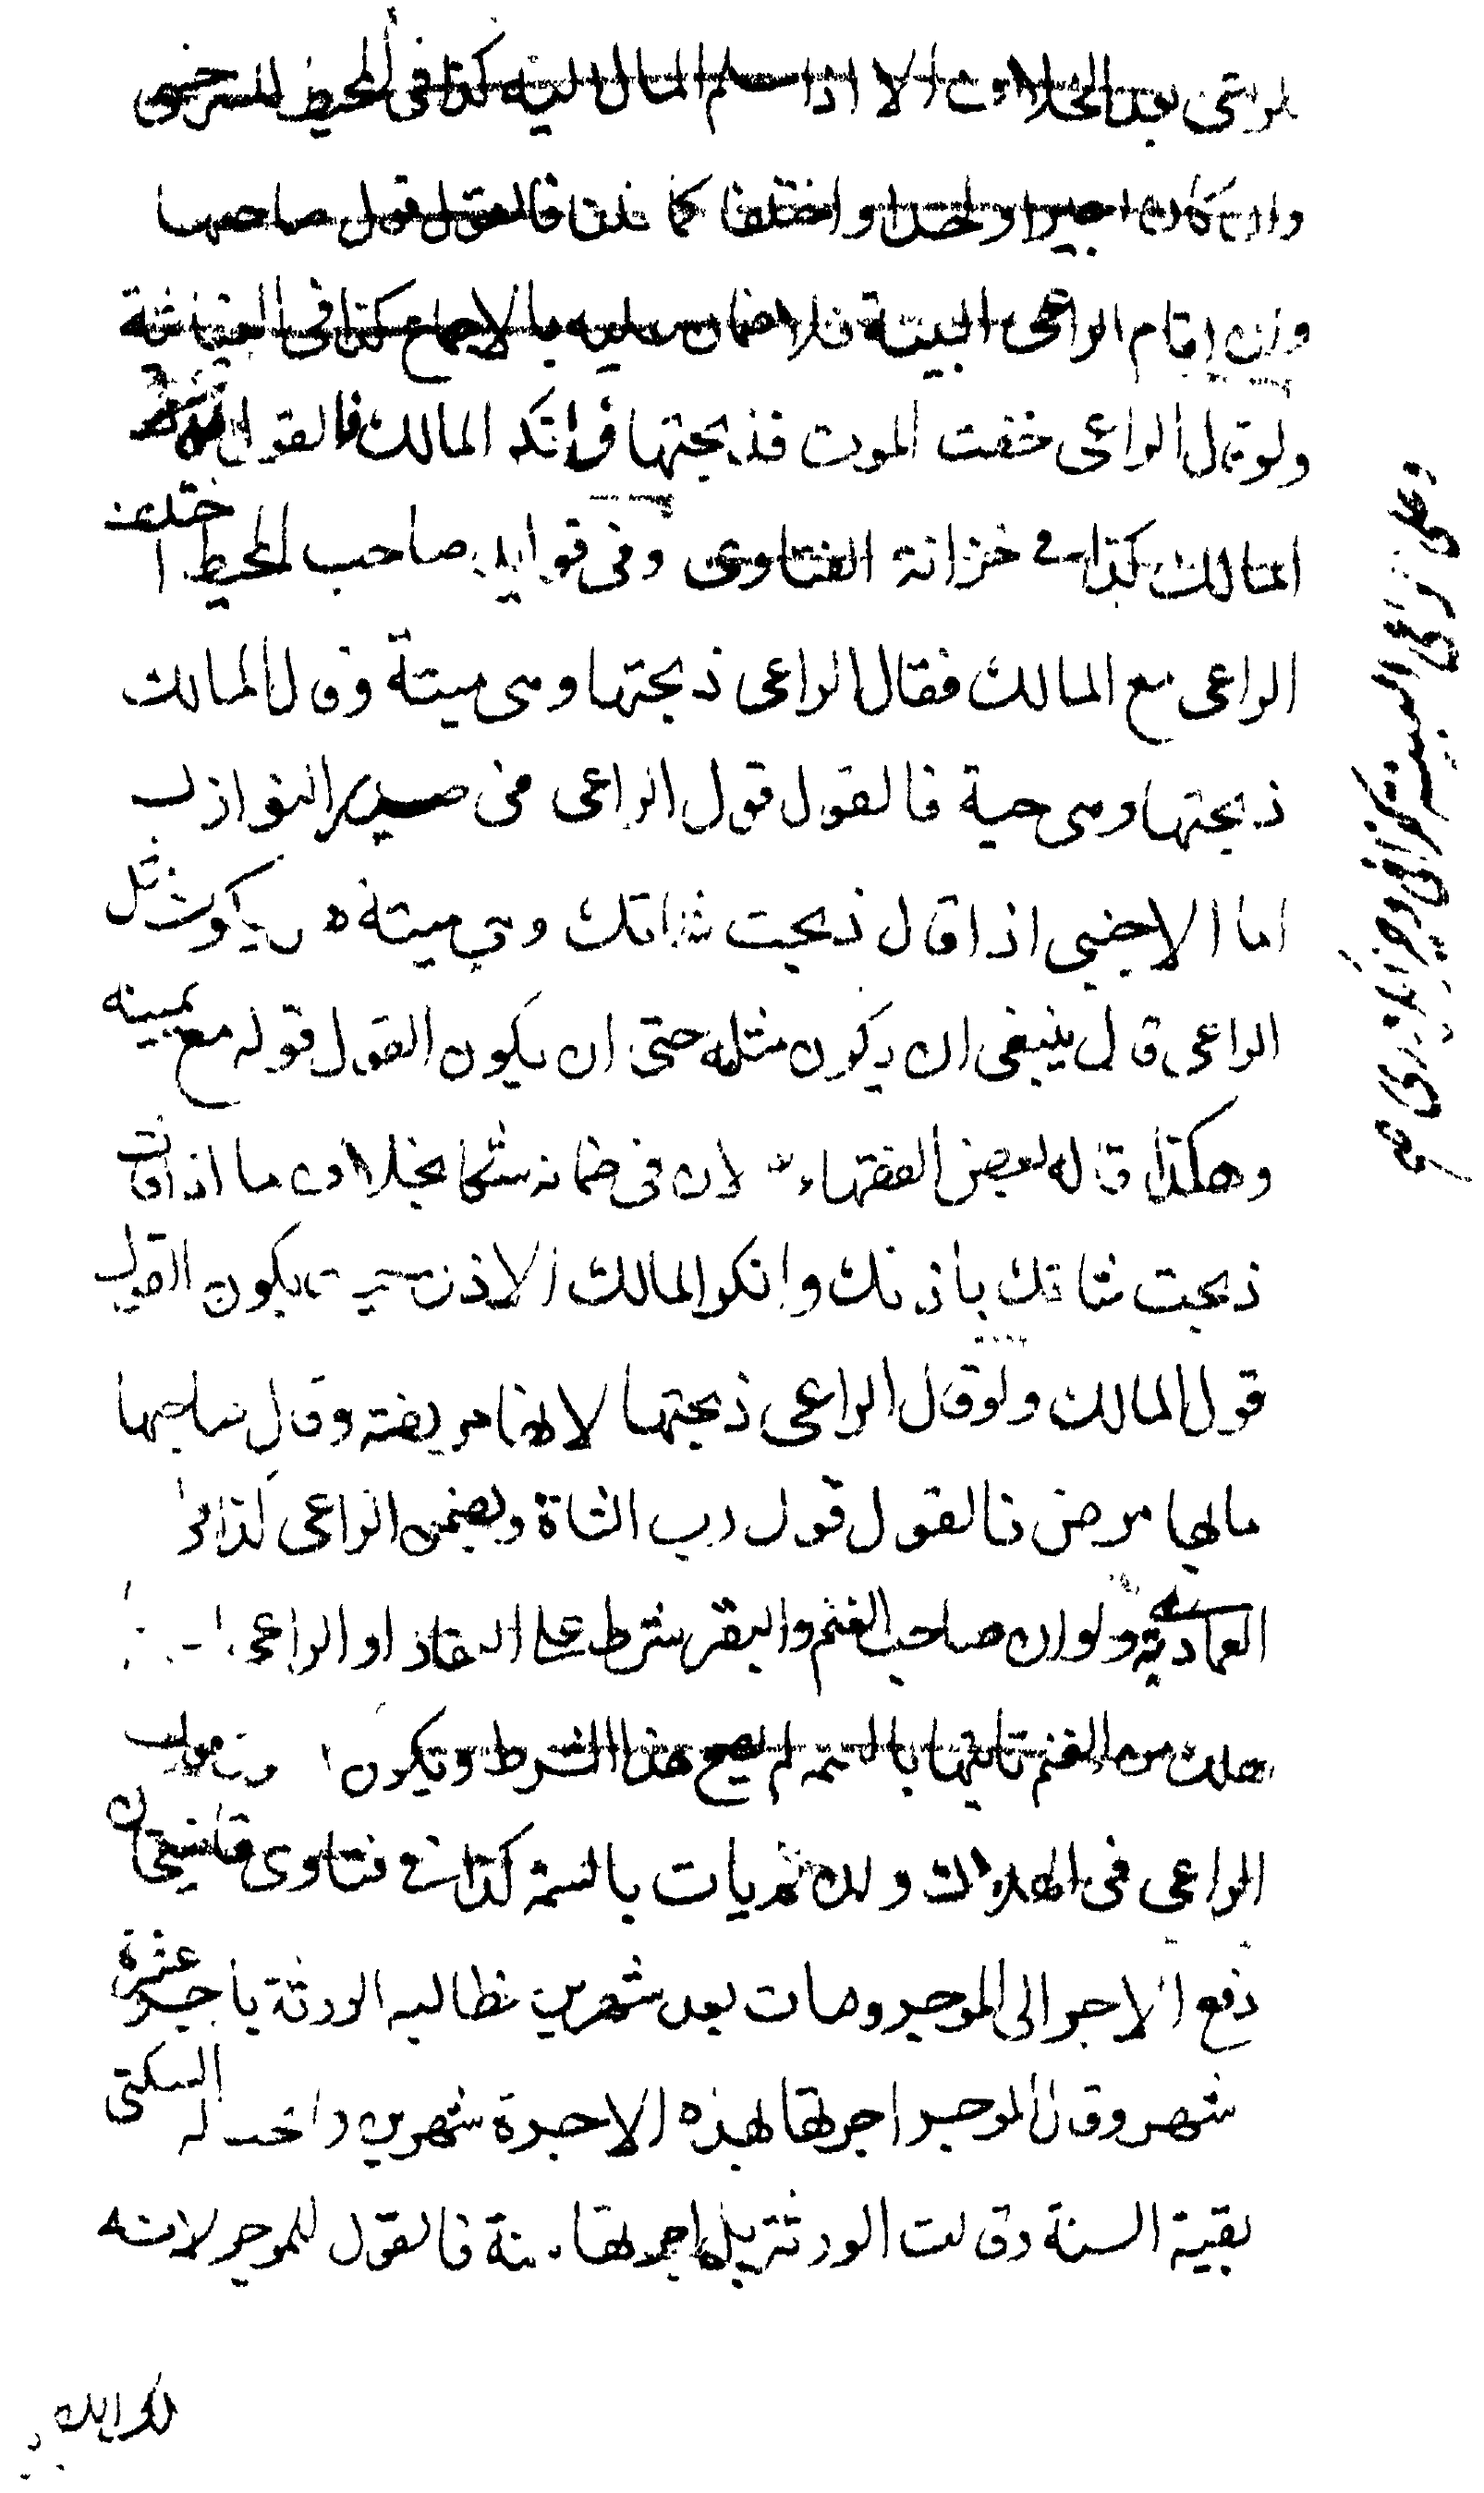 بعد الخلاف الا اذا سلم المال اليه كذا فى المحيط للسرخسى
وان كان اجيرا واختلفا كما فالقول قول صاحبها
وان اقام الراعى البينة فلا ضمان عليه بالاجماع كذا فى الغياثية
ولو قال الراعى خفت الموت فذبحتها وانكر المالك فالقول
المالك كذا فى خزانة الفتاوى وفى فوايد صاحب المحيط اختلف
الراعى مع المالك فقال الراعى ذبحتها وهى ميتة وقال المالك
ذبحتها وهى حية فالقول قول الراعى فى صيد النوازل
اما الاجنبى اذا قال ذبحت شاتك وهى ميتة هل يكون مثل
الراعى قال ينبغى ان يكون مثله حتى ان يكون القول قوله مع يمينه
وهكذا قاله بعض الفقهاء لان فى ضمانه شكا بخلاف ما اذا قال
ذبحت شاتك باذنك وانكر المالك الاذن حيث يكون القول
قول المالك ولو قال الراعى ذبحتها لانها مريضة وقال صاحبها
مابها مرض فالقول قول رب الشاة ويضمن الراعى كذا فى
العمادية ولو ان صاحب الغنم والبقر شرط على البقار او الراعى
هلك من الغنم تاتيها بالسمة لم يصح هذا الشرط ويكون القول
الراعى فى الهلاك وان لم يات بالسمة كذا فى فتاوى قاضيخان
دفع الاجر الى الموجر ومات بعد شهرين فطالبه الورثة باجر عشرة
شهر وقال الموجر اجرتها بهذه الاجرة شهرين واخذ له السكنى
بقية السنة وقالت الورثة بل اجرتها سنة فالقول للموجر لانه